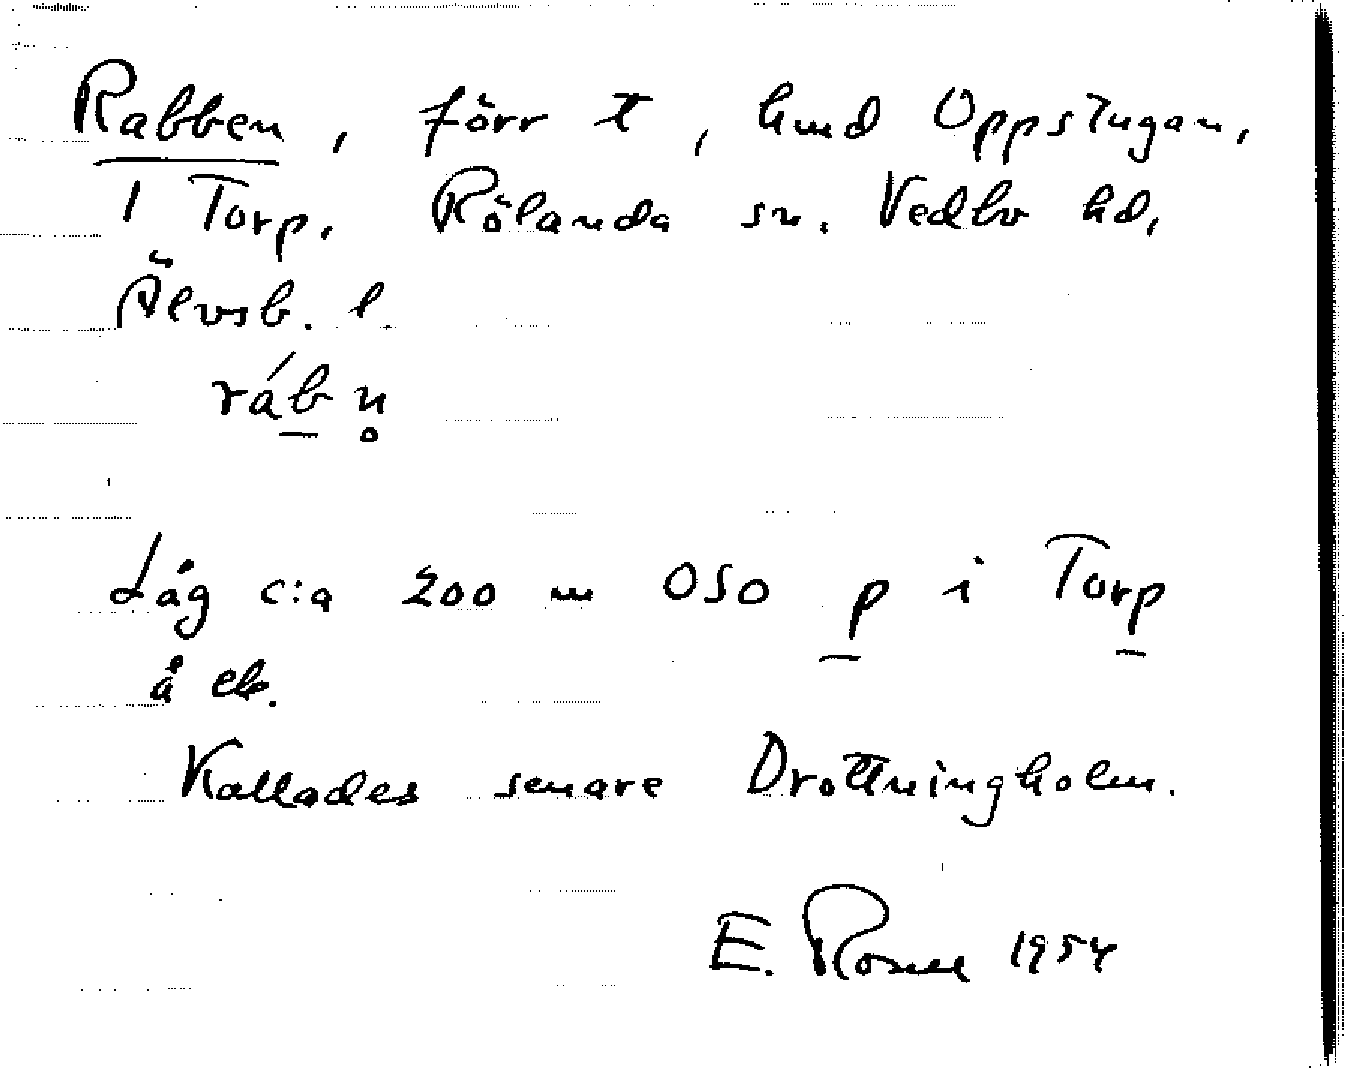 Rabben, förr t, hmd Oppstugan,
1 Torp. Rölanda sn. Vedbo hd,
Älvsb. l.
ráb̠ n̥
Låg c:a 200 m OSO p i Torp
å ek.
Kallades senare Drottningholm.
E. Rosell 1954